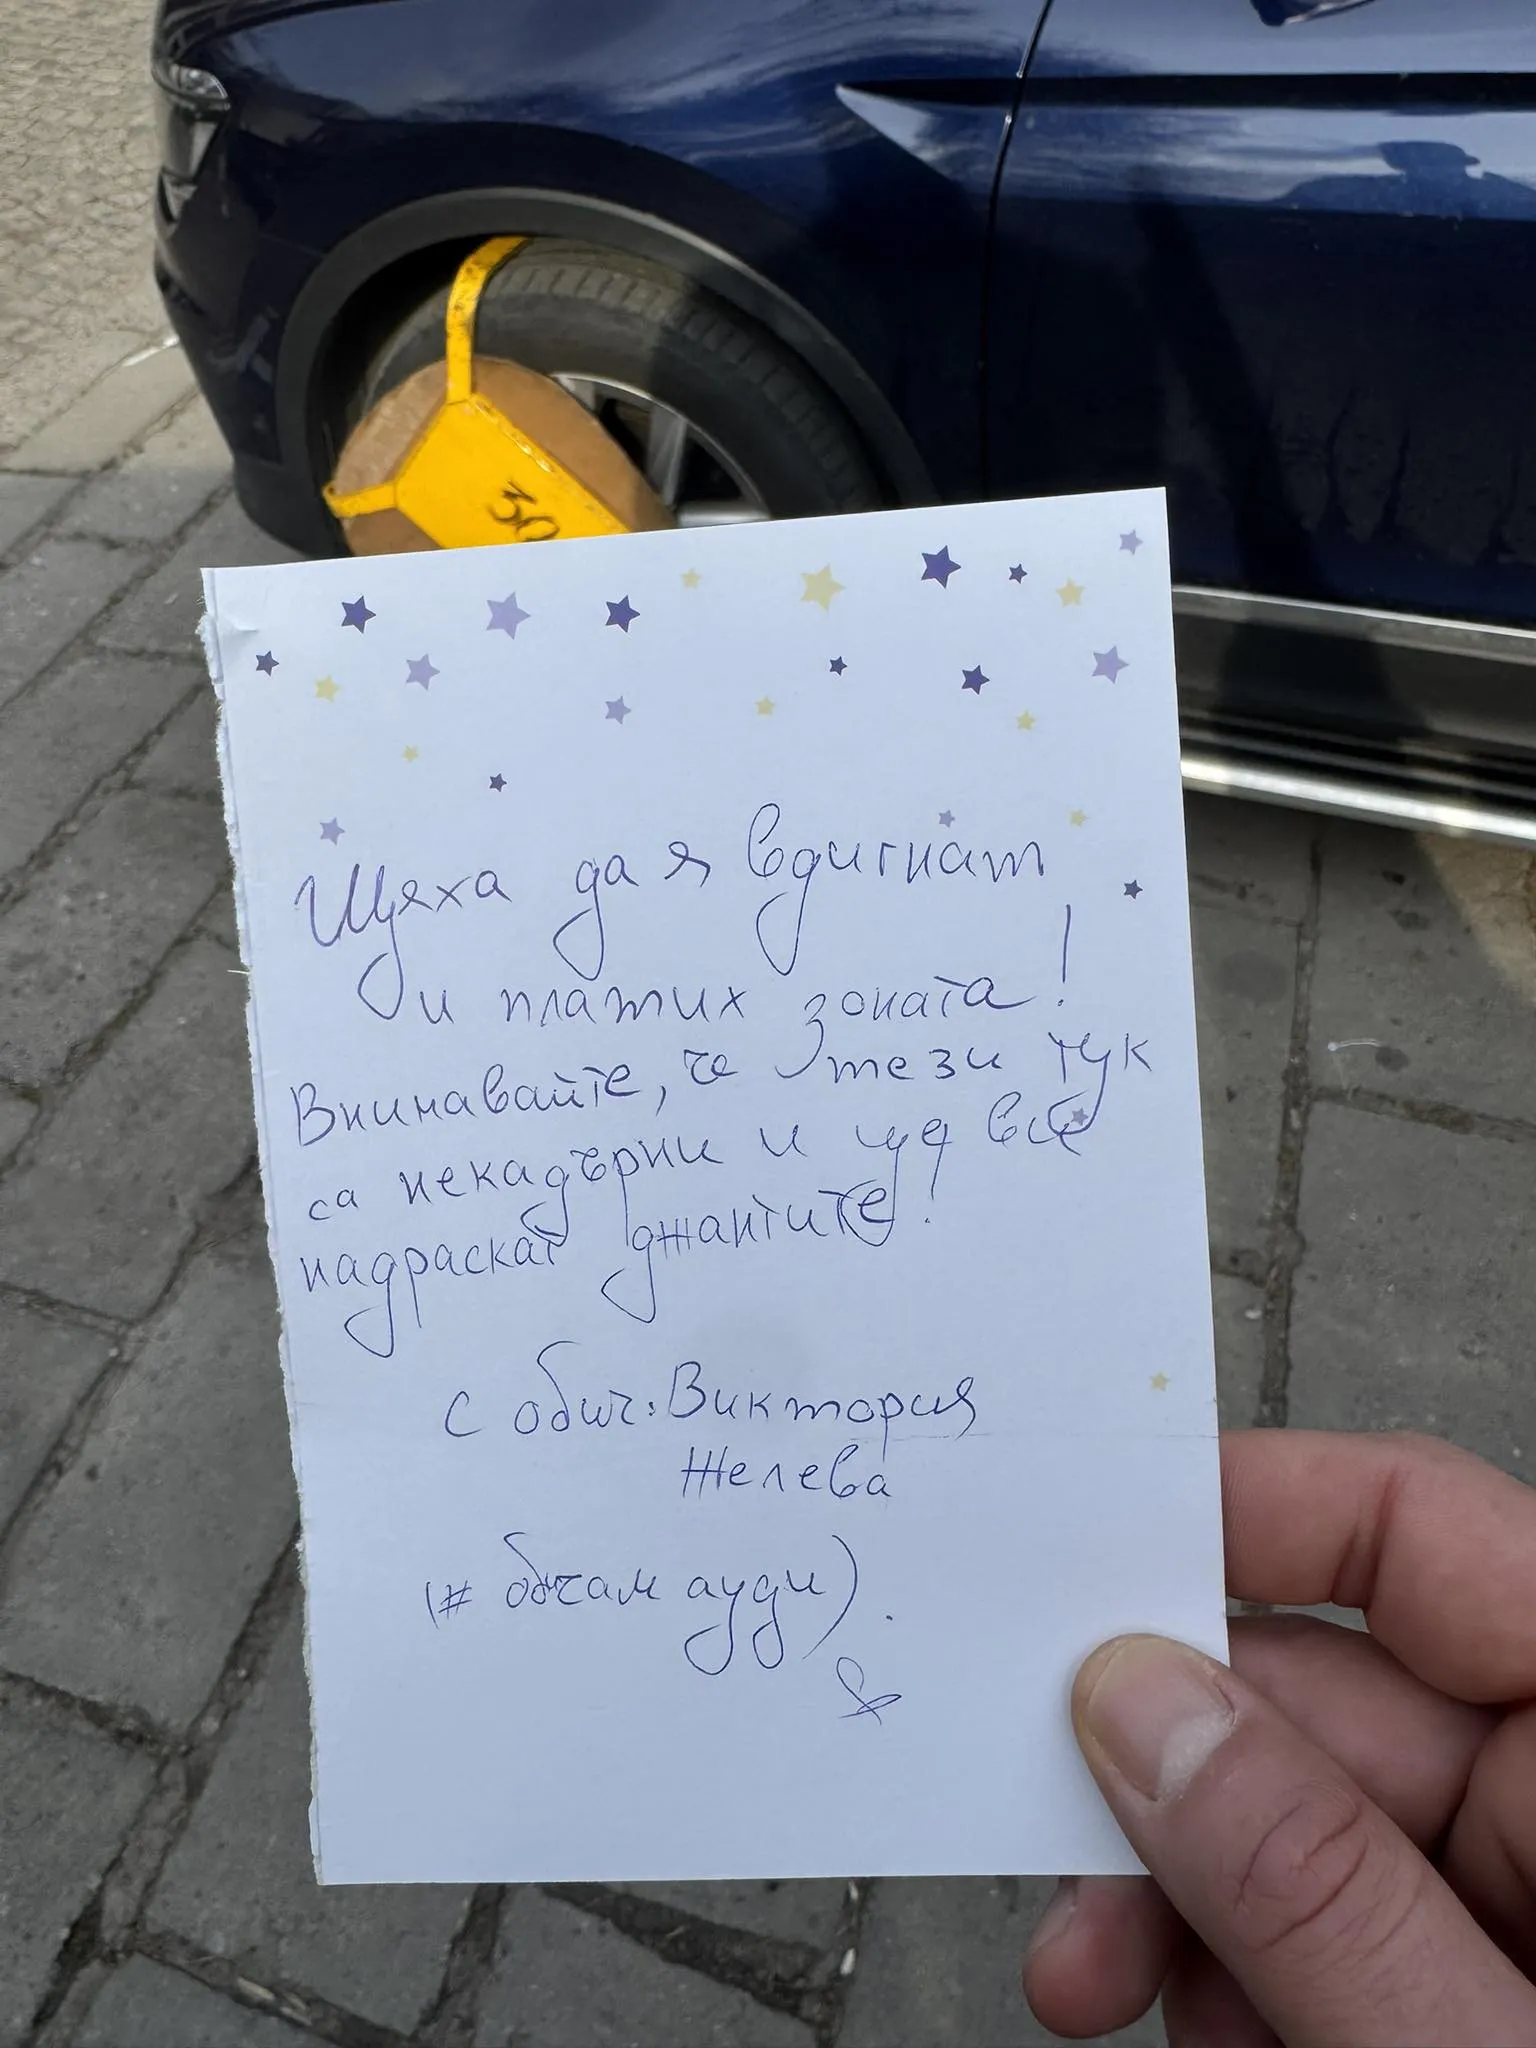 30
Щяха да я вдигнат
и платих зоната!
Внимавайте, че тези тук
са некадърни и ще все
надраскат джантите!
С обич: Виктория
Желева
(# обичам ауди).